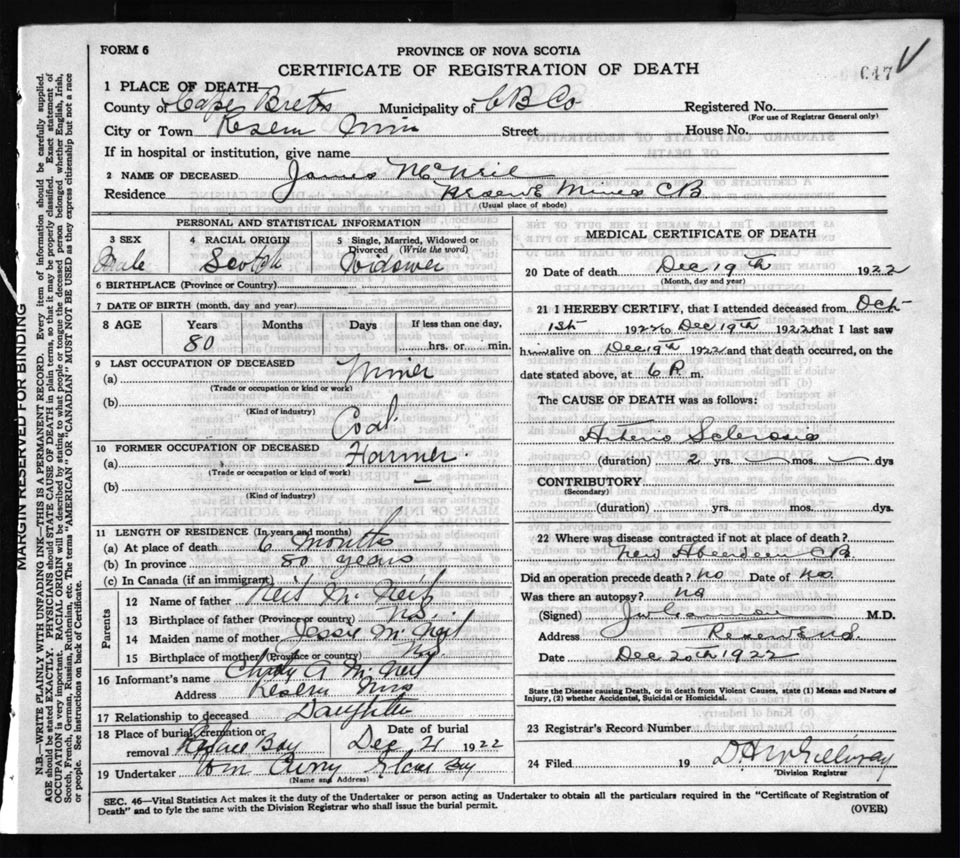 FORM 6
PROVINCE OF NOVA SCOTIA
CERTIFICATE OF REGISTRATION OF DEATH
047
1 PLACE OF DEATH—
County of Cape Breton Municipality of C B Co Registered No.
(For use of Registrar General only)
City or Town Reserve Mines Street House No.
If in hospital or institution, give name
2 NAME OF DECEASED James McNeil
Residence Reserve Mines CB
(Usual place of abode)
PERSONAL AND STATISTICAL INFORMATION
3 SEX 4 RACIAL ORIGIN 5 Single, Married, Widowed or Divorced (Write the word)
Male Scotch Widower
6 BIRTHPLACE (Province or Country)
7 DATE OF BIRTH (month, day and year)
8 AGE Years Months Days If less than one day,
80 hrs. or min.
9 LAST OCCUPATION OF DECEASED
(a) Miner
(Trade or occupation or kind or work)
(b) Coal
(Kind of industry)
10 FORMER OCCUPATION OF DECEASED
(a) Farmer
(Trade or occupation or kind of work)
(b) —
(Kind of industry)
11 LENGTH OF RESIDENCE (In years and months)
(a) At place of death 6 months
(b) In province 80 years
(c) In Canada (if an immigrant)
Parents
12 Name of father Neil McNeil
13 Birthplace of father (Province or country) N.S.
14 Maiden name of mother Jessie McNeil
15 Birthplace of mother (Province or country) N.S.
16 Informant's name A McNeil
Address Reserve Mines
17 Relationship to deceased Daughter
18 Place of burial, cremation or removal Date of burial
Glace Bay Dec 21 1922
19 Undertaker Wm Curry Glace Bay
(Name and Address)
MEDICAL CERTIFICATE OF DEATH
20 Date of death Dec 19th 1922
(Month, day and year)
21 I HEREBY CERTIFY, that I attended deceased from Oct
1st 1922 to Dec 19th 1922 that I last saw
him alive on Dec 19th 1922 and that death occurred, on the
date stated above, at 6 P. m.
The CAUSE OF DEATH was as follows:
Arterio Sclerosis
(duration) 2 yrs. — mos. — dys
CONTRIBUTORY
(Secondary)
(duration) yrs. mos. dys.
22 Where was disease contracted if not at place of death?
New Aberdeen CB
Did an operation precede death? no Date of no
Was there an autopsy? no
(Signed) M.D.
Address Reserve N.S.
Date Dec 20th 1922
State the Disease causing Death, or in death from Violent Causes, state (1) Means and Nature of
Injury, (2) whether Accidental, Suicidal or Homicidal.
23 Registrar's Record Number
24 Filed 19 D. H. McGillivray
Division Registrar
SEC. 46—Vital Statistics Act makes it the duty of the Undertaker or person acting as Undertaker to obtain all the particulars required in the "Certificate of Registration of
Death" and to fyle the same with the Division Registrar who shall issue the burial permit.
(OVER)
MARGIN RESERVED FOR BINDING
N.B.—WRITE PLAINLY WITH UNFADING INK—THIS IS A PERMANENT RECORD. Every item of information should be carefully supplied.
AGE should be stated EXACTLY. PHYSICIANS should STATE CAUSE OF DEATH in plain terms, so that it may be properly classified. Exact statement of
OCCUPATION is very important. RACIAL ORIGIN will be described by stating to what people or tongue the deceased person belonged, whether English, Irish,
Scotch, French, German, Russian, Ruthenian, etc. The terms "AMERICAN" or "CANADIAN" MUST NOT BE USED as they express citizenship but not a race
or people. See instructions on back of Certificate.